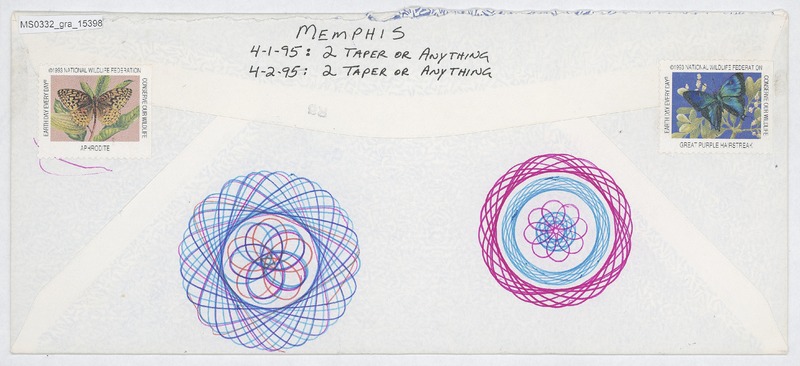 MS0332_gra_15398
MEMPHIS
4-1-95: 2 TAPER OR ANYTHING
4-2-95: 2 TAPER OR ANYTHING
©1993 NATIONAL WILDLIFE FEDERATION
EARTH DAY EVERY DAY®
CONSERVE OUR WILDLIFE
APHRODITE
©1993 NATIONAL WILDLIFE FEDERATION
EARTH DAY EVERY DAY®
CONSERVE OUR WILDLIFE
GREAT PURPLE HAIRSTREAK